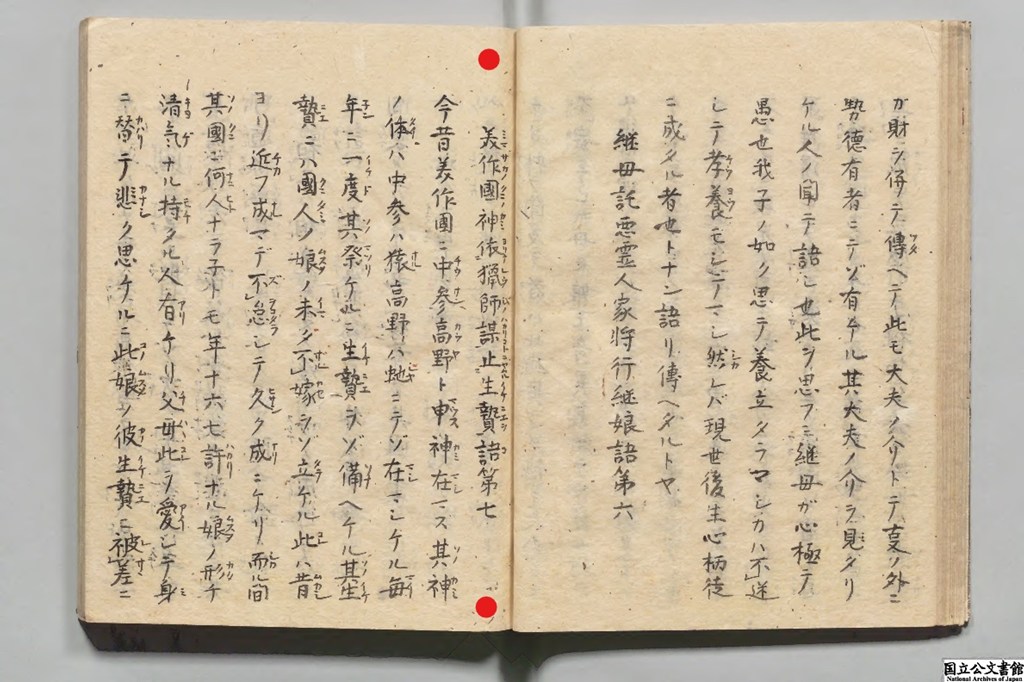 ガ財ヲ併テ傳ヘテ此モ大夫ノ介トテ事ノ外ニ
勢德有者ニテゾ有ケル其大夫ノ介ヲ見ダリ
ケル人ノ聞テ語シ也此ヲ思フニ継母ガ心極テ
愚也我子ノ如ク思テ養立タラマシカハ不迷
シテ孝養モシナマシ然レバ現世後生心柄徒
ニ成タル者也トナン語リ傳ヘタルトヤ
継母託悪霊人家将行継娘語第六
美作國神依猟師謀止生贄語第七
今昔美作國ニ中参高野ト申神在マス其神
ノ体ハ中参ハ猿高野ハ虵ニテゾ在マシケル毎
年ニ一度其祭ケルニ生贄ヲゾ備ヘケル其生
贄ニハ國人ノ娘ノ未ダ不嫁ヲゾ立ケル此ハ昔
ヨリ近フ成マデ不怠シテ久ク成ニケリ而ル間
其國ニ何人ナラ子トモ年十六七許ナル娘ノ形チ
清気ナル持タル人有ケリ父母此ヲ愛シテ身
ニ替テ悲ク思ケルニ此娘ノ彼生贄ニ被差ニ
国立公文書館
National Archives of Japan